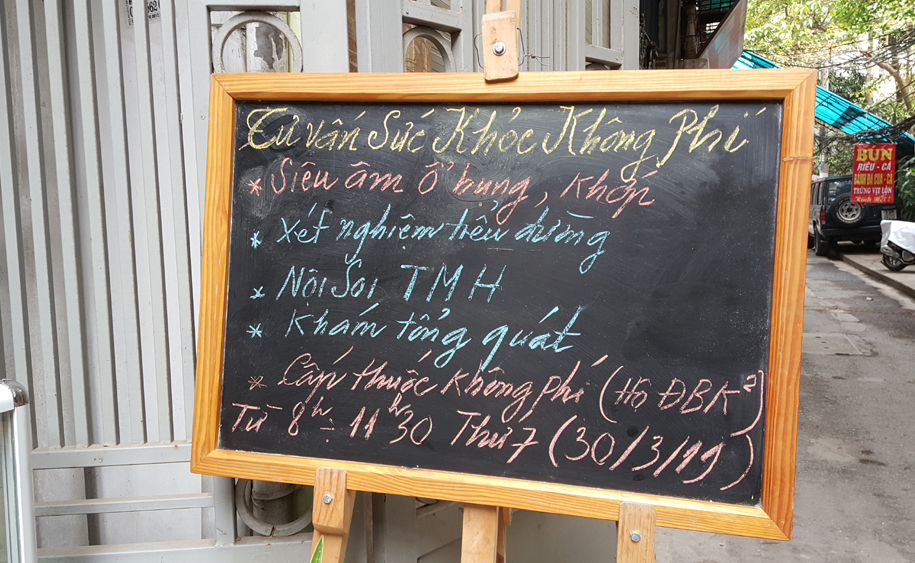 Tư vấn Sức Khỏe Không Phí
* Siêu âm ổ bụng, Khớp
* Xét nghiệm tiểu đường
* Nội Soi TMH
* Khám tổng quát
* Cấp thuốc Không phí (Hộ ĐBK²)
Từ 8h ÷ 11h30 Thứ 7 (30/3/19)
BÚN
RIÊU - CÁ
BÁNH ĐA CUA - CÁ
TRỨNG VỊT LỘN